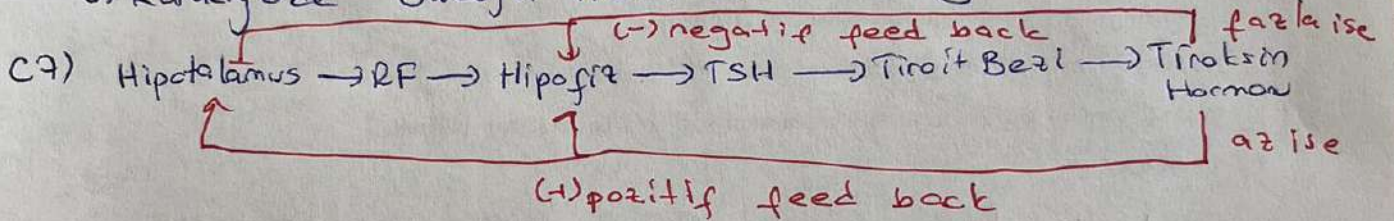 (-) negatif feed back fazla ise
C7) Hipotalamus → RF → Hipofiz → TSH → Tiroit Bezi → Tiroksin
Hormon
az ise
(+) pozitif feed back